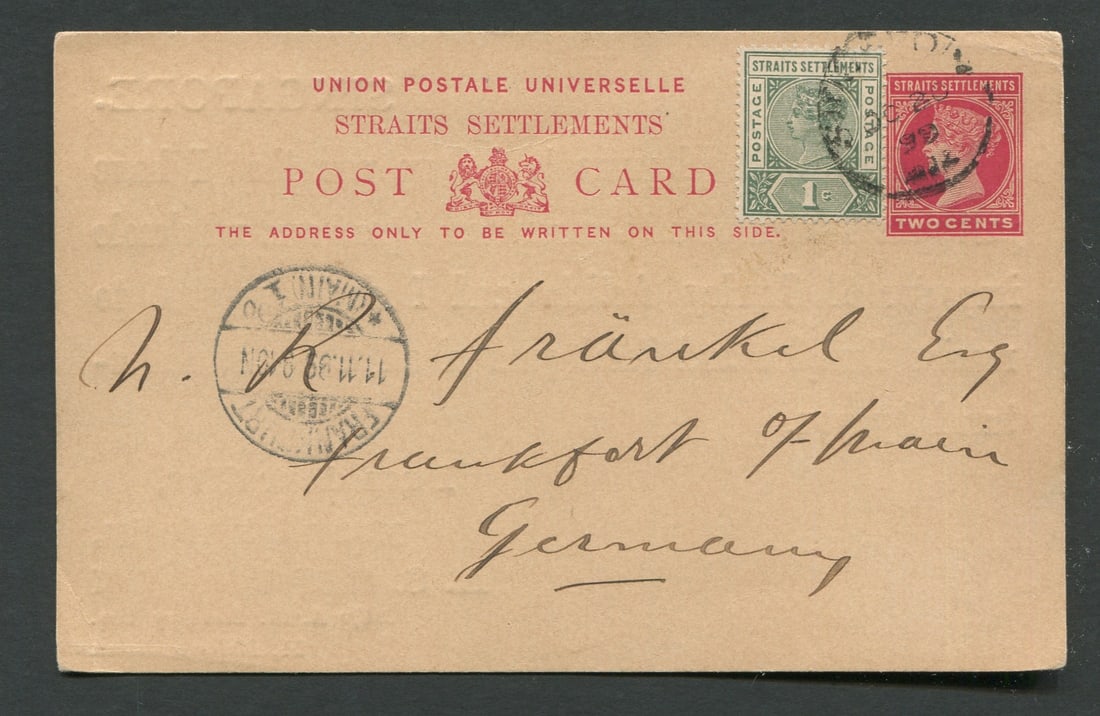 UNION POSTALE UNIVERSELLE
STRAITS SETTLEMENTS
POST CARD
THE ADDRESS ONLY TO BE WRITTEN ON THIS SIDE.
STRAITS SETTLEMENTS
POSTAGE POSTAGE
1c
STRAITS SETTLEMENTS
TWO CENTS
OC 20
FRANKFURT
11.11.98
(MAIN) 1
N. K. Fränkel Esq
Frankfort o/Main
Germany